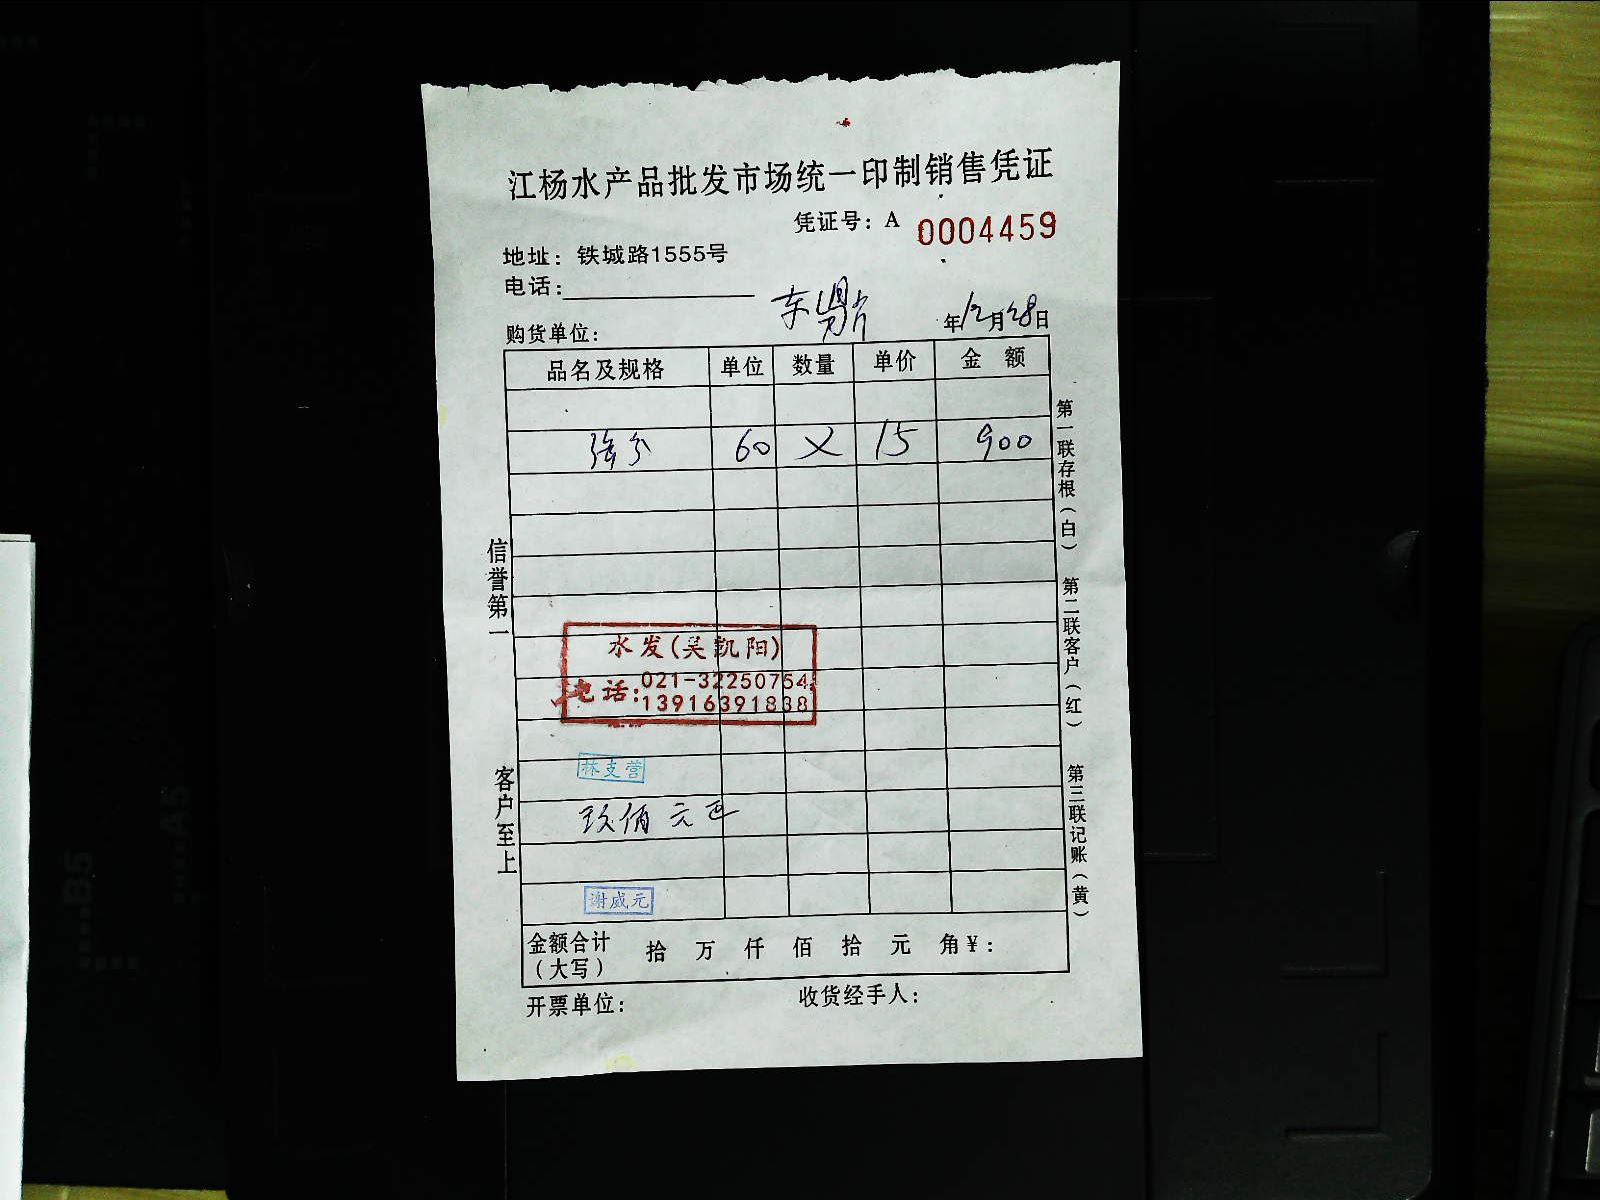 江杨水产品批发市场统一印制销售凭证
凭证号：A 0004459
地址：铁城路1555号
电话：
购货单位：
年12月28日
品名及规格 单位 数量 单价 金额
60 × 15 900
信誉第一
客户至上
第一联存根（白）
第二联客户（红）
第三联记账（黄）
水发(吴凯阳)
电话：021-32250754
13916391838
林支营
玖佰元正
谢威元
金额合计（大写） 拾 万 仟 佰 拾 元 角 ¥：
开票单位： 收货经手人：